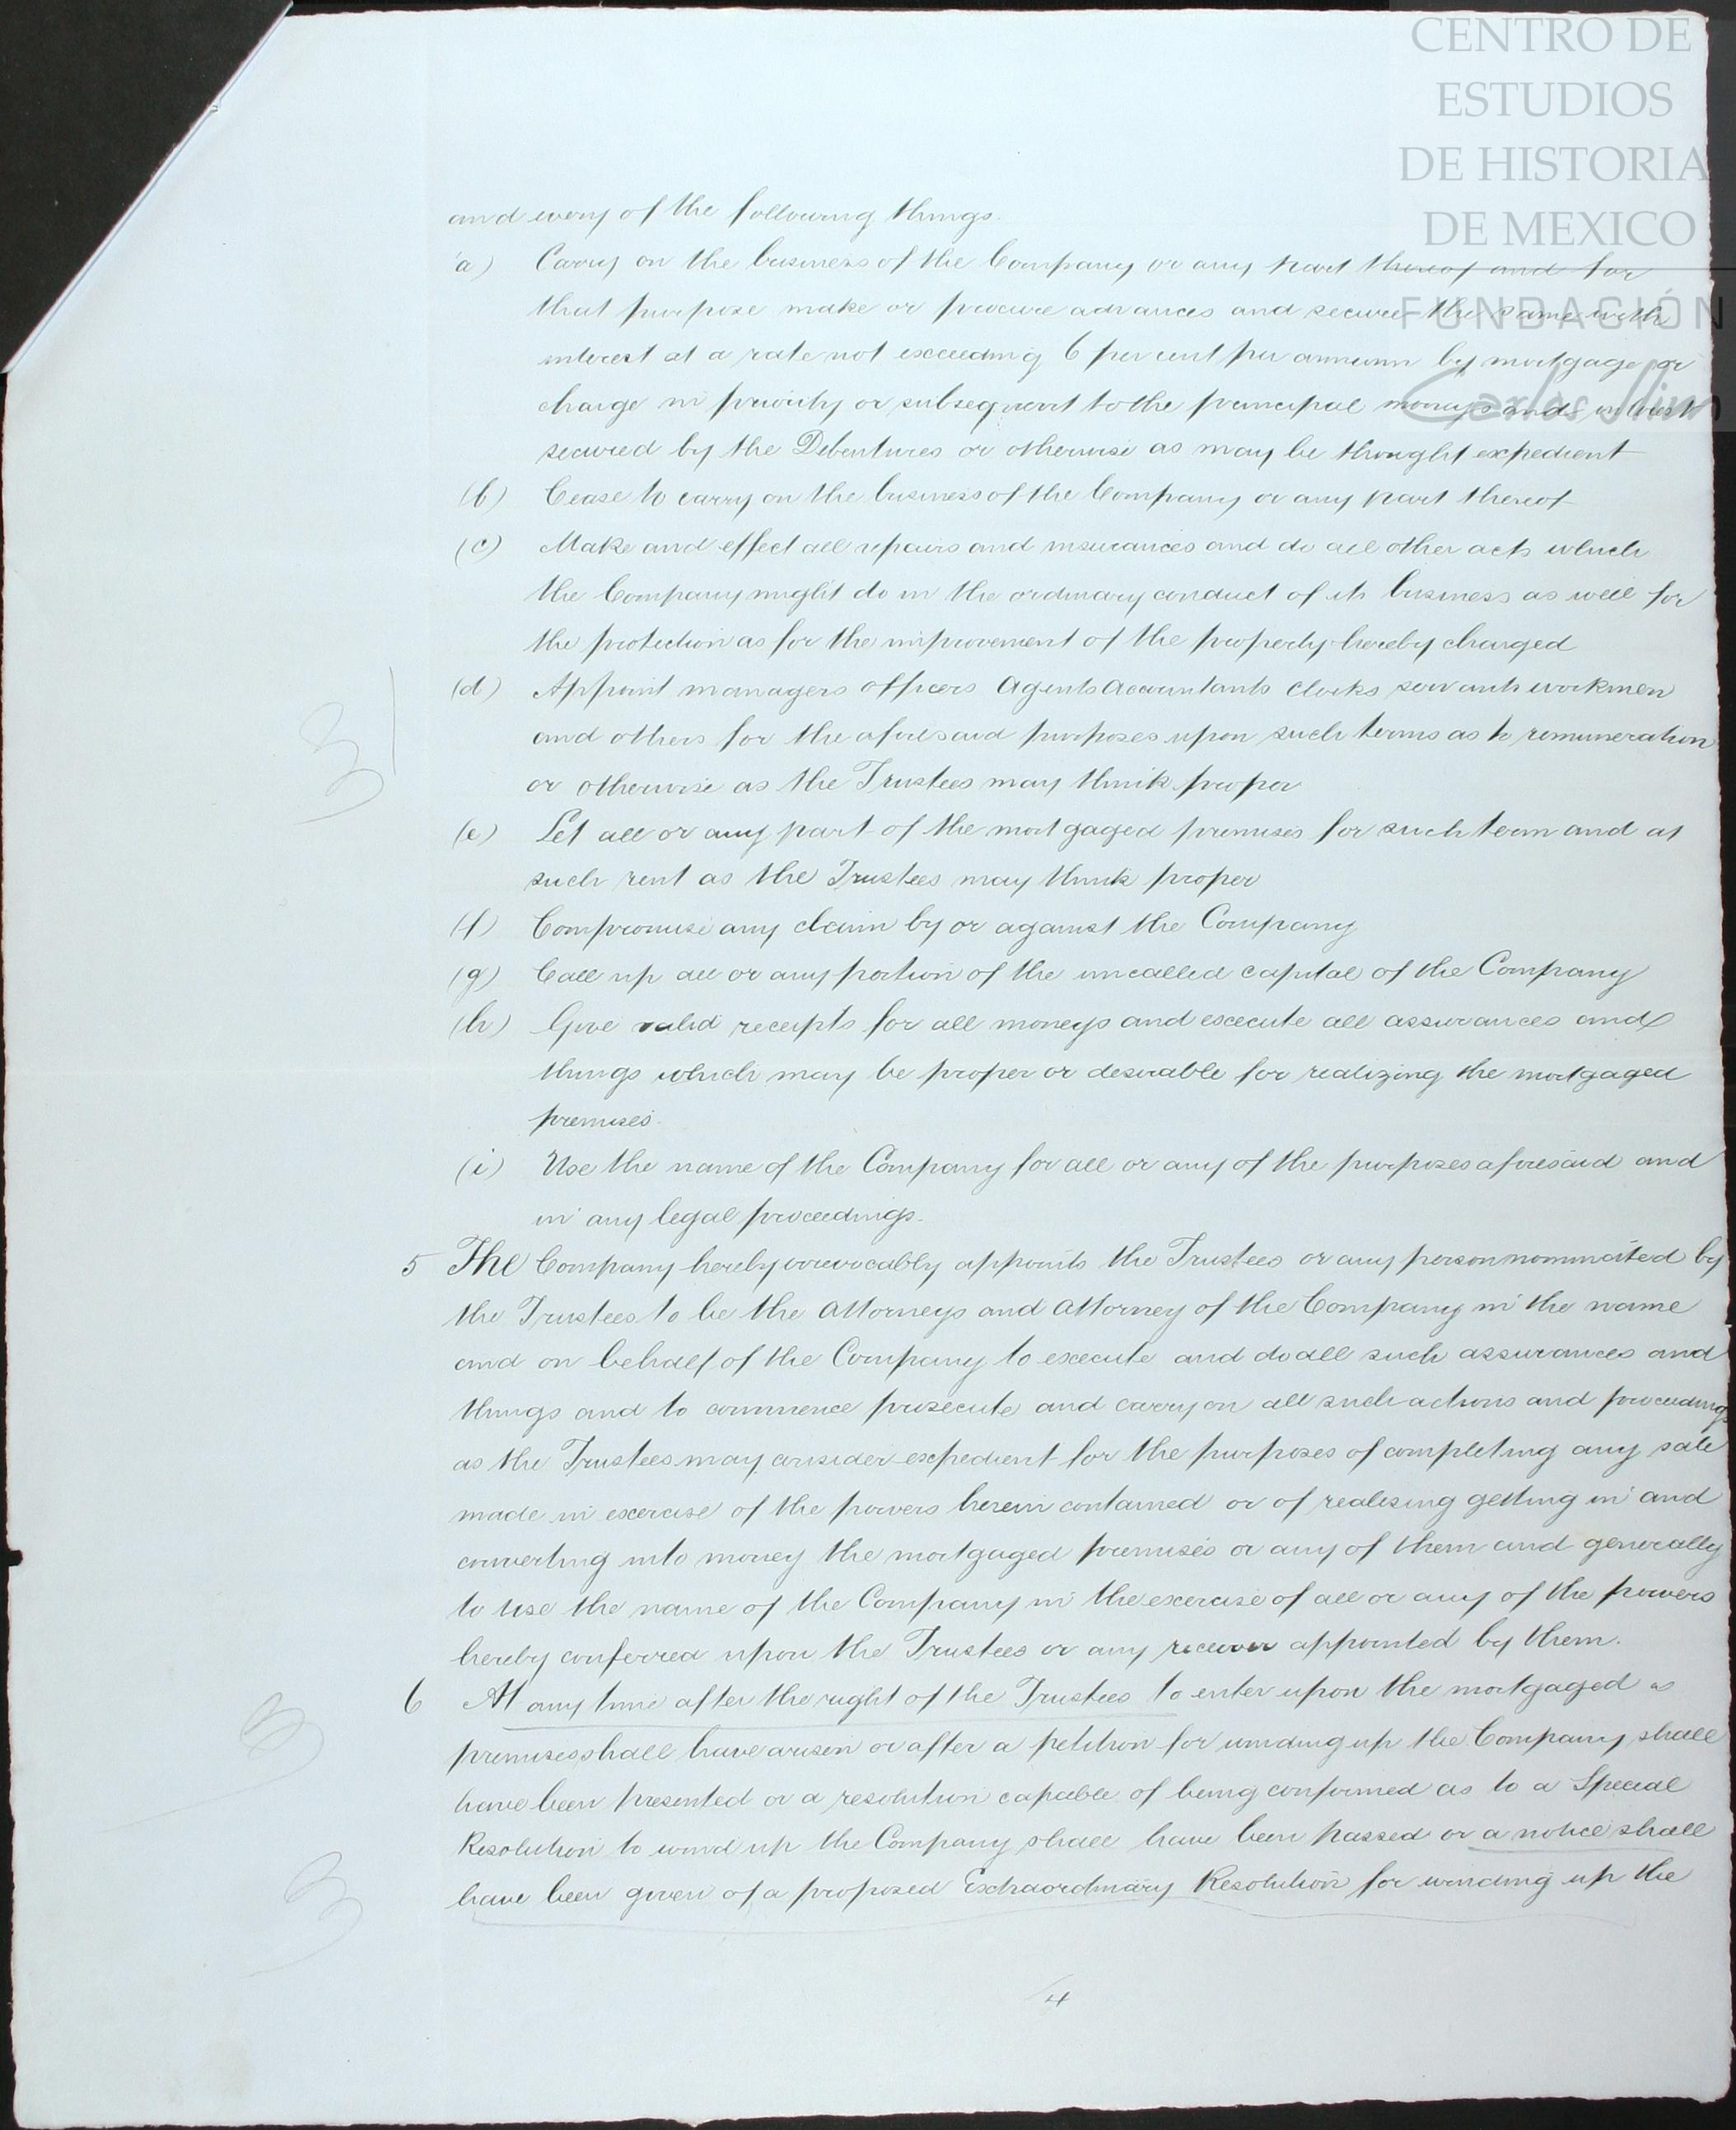 CENTRO DE
ESTUDIOS
DE HISTORIA
DE MEXICO
FUNDACIÓN
Carlos Slim
and every of the following things.
(a) Carry on the business of the Company or any part thereof and for
that purpose make or procure advances and secure the same with
interest at a rate not exceeding 6 per cent per annum by mortgage or
charge in priority or subsequent to the principal moneys and interest
secured by the Debentures or otherwise as may be thought expedient
(b) Cease to carry on the business of the Company or any part thereof
(c) Make and effect all repairs and insurances and do all other acts which
the Company might do in the ordinary conduct of its business as well for
the protection as for the improvement of the property hereby charged
(d) Appoint managers officers Agents Accountants clerks servants workmen
and others for the aforesaid purposes upon such terms as to remuneration
or otherwise as the Trustees may think proper
(e) Let all or any part of the mortgaged premises for such term and at
such rent as the Trustees may think proper
(f) Compromise any claim by or against the Company
(g) Call up all or any portion of the uncalled capital of the Company
(h) Give valid receipts for all moneys and execute all assurances and
things which may be proper or desirable for realizing the mortgaged
premises.
(i) Use the name of the Company for all or any of the purposes aforesaid and
in any legal proceedings.
5 The Company hereby irrevocably appoints the Trustees or any person nominated by
the Trustees to be the Attorneys and Attorney of the Company in the name
and on behalf of the Company to execute and do all such assurances and
things and to commence prosecute and carry on all such actions and proceedings
as the Trustees may consider expedient for the purposes of completing any sale
made in exercise of the powers herein contained or of realising getting in and
converting into money the mortgaged premises or any of them and generally
to use the name of the Company in the exercise of all or any of the powers
hereby conferred upon the Trustees or any receiver appointed by them.
6 At any time after the right of the Trustees to enter upon the mortgaged
premises shall have arisen or after a petition for winding up the Company shall
have been presented or a resolution capable of being confirmed as to a Special
Resolution to wind up the Company shall have been passed or a notice shall
have been given of a proposed Extraordinary Resolution for winding up the
4